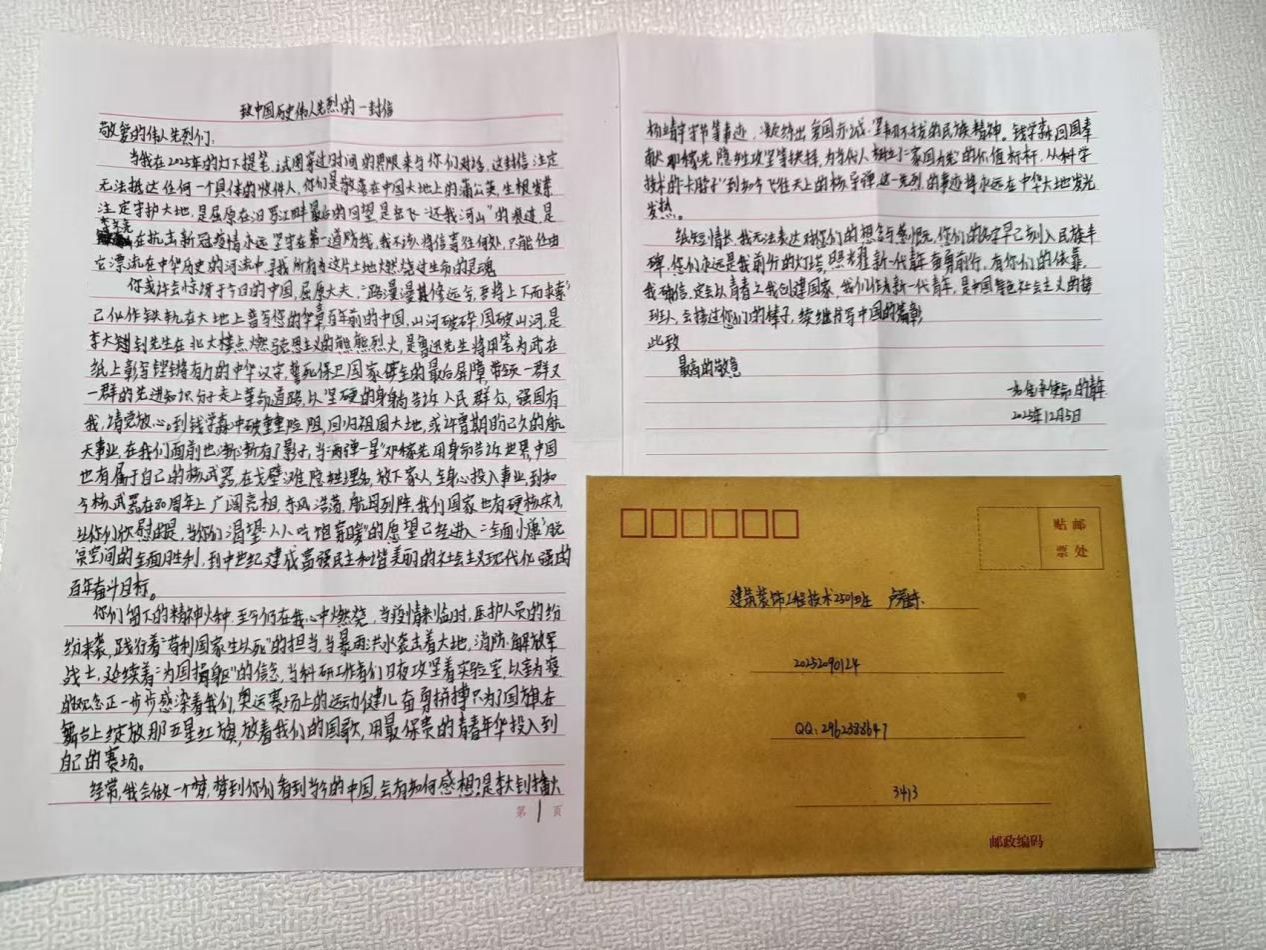 致中国历史伟人先烈的一封信
敬爱的伟人先烈们:
当我在2025年的灯下提笔,试图穿过时间的界限来与你们对话,这封信注定
无法抵达任何一个具体的收件人,你们是散落在中国大地上的蒲公英,生根发芽
注定守护大地,是屈原在汨罗江畔最后的回望是岳飞“还我河山”的痕迹,是
在抗击新冠疫情永远坚守在第一道防线,我不该将信寄往何处,只能任由
它漂流在中华历史的河流中,寻找所有为这片土地燃烧过生命的灵魂
你或许会惊讶于今日的中国,屈原大夫,“路漫漫其修远兮,吾将上下而求索”
已化作铁轨在大地上谱写您的华章百年前的中国,山河破碎,国破山河,是
李大钊先生在北大楼点燃马克思主义的熊熊烈火,是鲁迅先生将用笔为武在
纸上彰写铿锵有力的中华汉字,誓死保卫国家 的最后屏障,带领一群又
一群的先进知识分子走上革命道路,以坚硬的身躯告诉人民群众,强国有
我,请党放心。到钱学森冲破重重险阻,回归祖国大地,或许曾期盼已久的航
天事业,在我们面前也渐渐有了影子,当“两弹一星”邓稼先用身躯告诉世界,中国
也有属于自己的核武器,在戈壁滩隐姓埋名,放下家人,全身心投入事业,到如
今核武器在80周年上广阔亮相,东风浩荡,航母列阵,我们国家也有硬核实力
让你们欣慰的是,当你们渴望“人人吃饱穿暖”的愿望已经进入“全面小康”脱
贫空间的全面胜利,到中世纪建成富强民主和谐美丽的社会主义现代化强的
百年奋斗目标。
你们留下的精神火种,至今仍在我心中燃烧,当疫情来临时,医护人员的纷
纷来袭,践行着“苟利国家生以死”的担当,当暴雨洪水袭击着大地,消防、解放军
战士,延续着“为国捐躯”的信念,当科研工作者们日夜攻坚着实验室,以
的观念正一步步感染着我们,奥运赛场上的运动健儿,奋勇拼搏只为了国旗在
舞台上绽放那五星红旗,放着我们的国歌,用最保贵的青春年华投入到
自己的赛场。
经常,我会做一个梦,梦到你们看到当今的中国,会有如何感想?是李大钊
第 1 页
杨靖宇等事迹, 出爱国赤诚、坚韧不拔的民族精神。钱学森回国奉
献,邓稼先隐姓攻坚等抉择,为当代人树立“家国为先”的价值标杆,从科学
技术的“卡脖子”到如今飞往天上的核导弹,这一先烈的事迹将永远在中华大地发光
发热。
纸短情长,我无法表达对你们的想念与感慨,你们的名字早已刻入民族丰
碑,您们永远是我前行的灯塔,照光着新一代青年奋勇前行,有你们的依靠,
我确信,定会以青春之我创建国家,我们作为新一代青年,是中国特色社会主义的接
班人,会接过你们的棒子,续继片写中国的篇彰
此致
最高的敬意
一名 的青年
2025年12月5日
贴 邮
票 处
建筑装饰工程技术2501班 卢
20252090124
QQ: 2962388647
3413
邮政编码